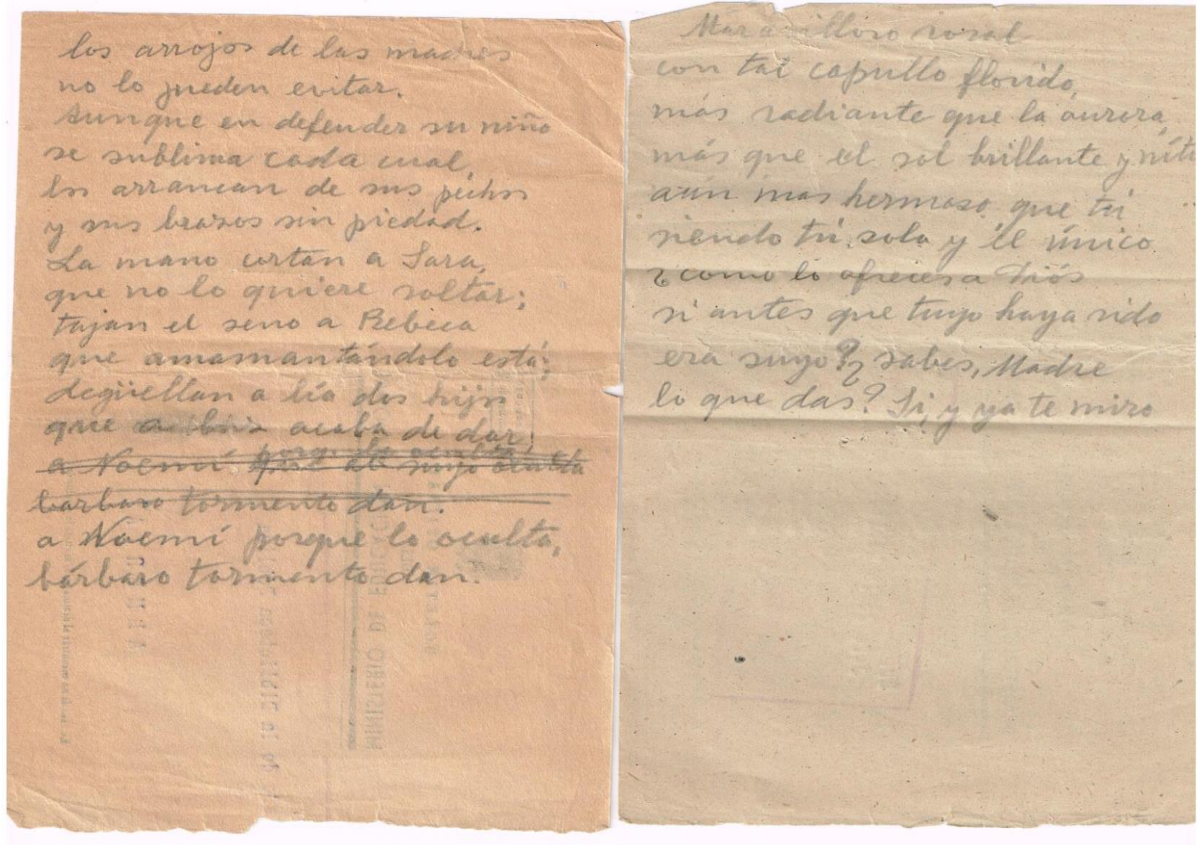 los arrojos de las madres
no lo pueden evitar.
Aunque en defender su niño
se sublima cada cual,
los arrancan de sus pechos
y sus brazos sin piedad.
La mano cortan a Sara,
que no lo quiere soltar;
tajan el seno a Rebeca
que amamantándolo está;
degüellan a Lía dos hijos
que acaba de dar;
porque lo oculta,
a Noemí que al suyo oculta
bárbaro tormento dan.
a Noemí porque lo oculta,
bárbaro tormento dan.
MINISTERIO DE
Maravilloso rosal
con tal capullo florido,
más radiante que la aurora,
más que el sol brillante y níti
aún mas hermoso que tú
siendo tú, sola y él único
¿como lo ofreces a Diós
si antes que tuyo haya sido
era suyo? ¿sabes, Madre
lo que das? Si, y ya te miro